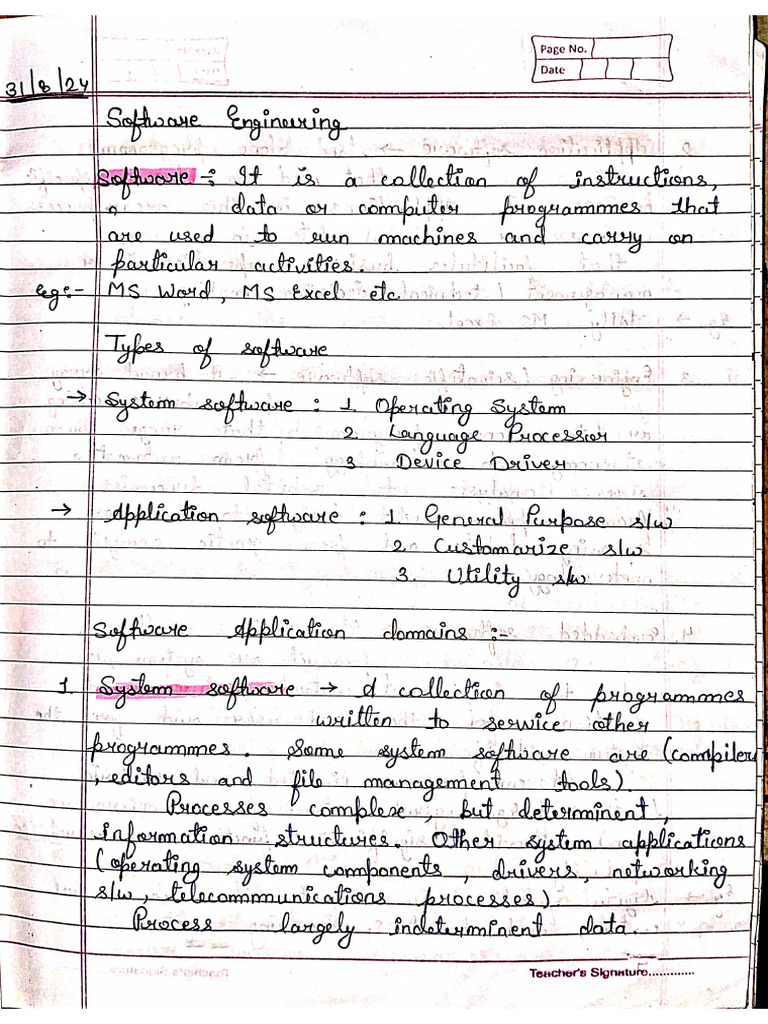 Page No.
Date
31/8/24
Software Engineering
Software :- It is a collection of instructions,
data or computer programmes that
are used to run machines and carry on
particular activities.
eg:- MS Word, MS Excel etc
Types of software
→ System software : 1. Operating System
2. Language Processior
3. Device Driver
→ Application software : 1. General Purpose s/w
2. Customarize s/w
3. Utility s/w
Software Application domains :-
1. System software → A collection of programmes
written to service other
programmes. Some system software are (compiler
, editors and file management tools).
Processes complexe, but determinent,
information structures. Other system applications
(operating system components, drivers, networking
s/w, telecommunications processes)
Process largely indeterminent data.
Teacher's Signature.............